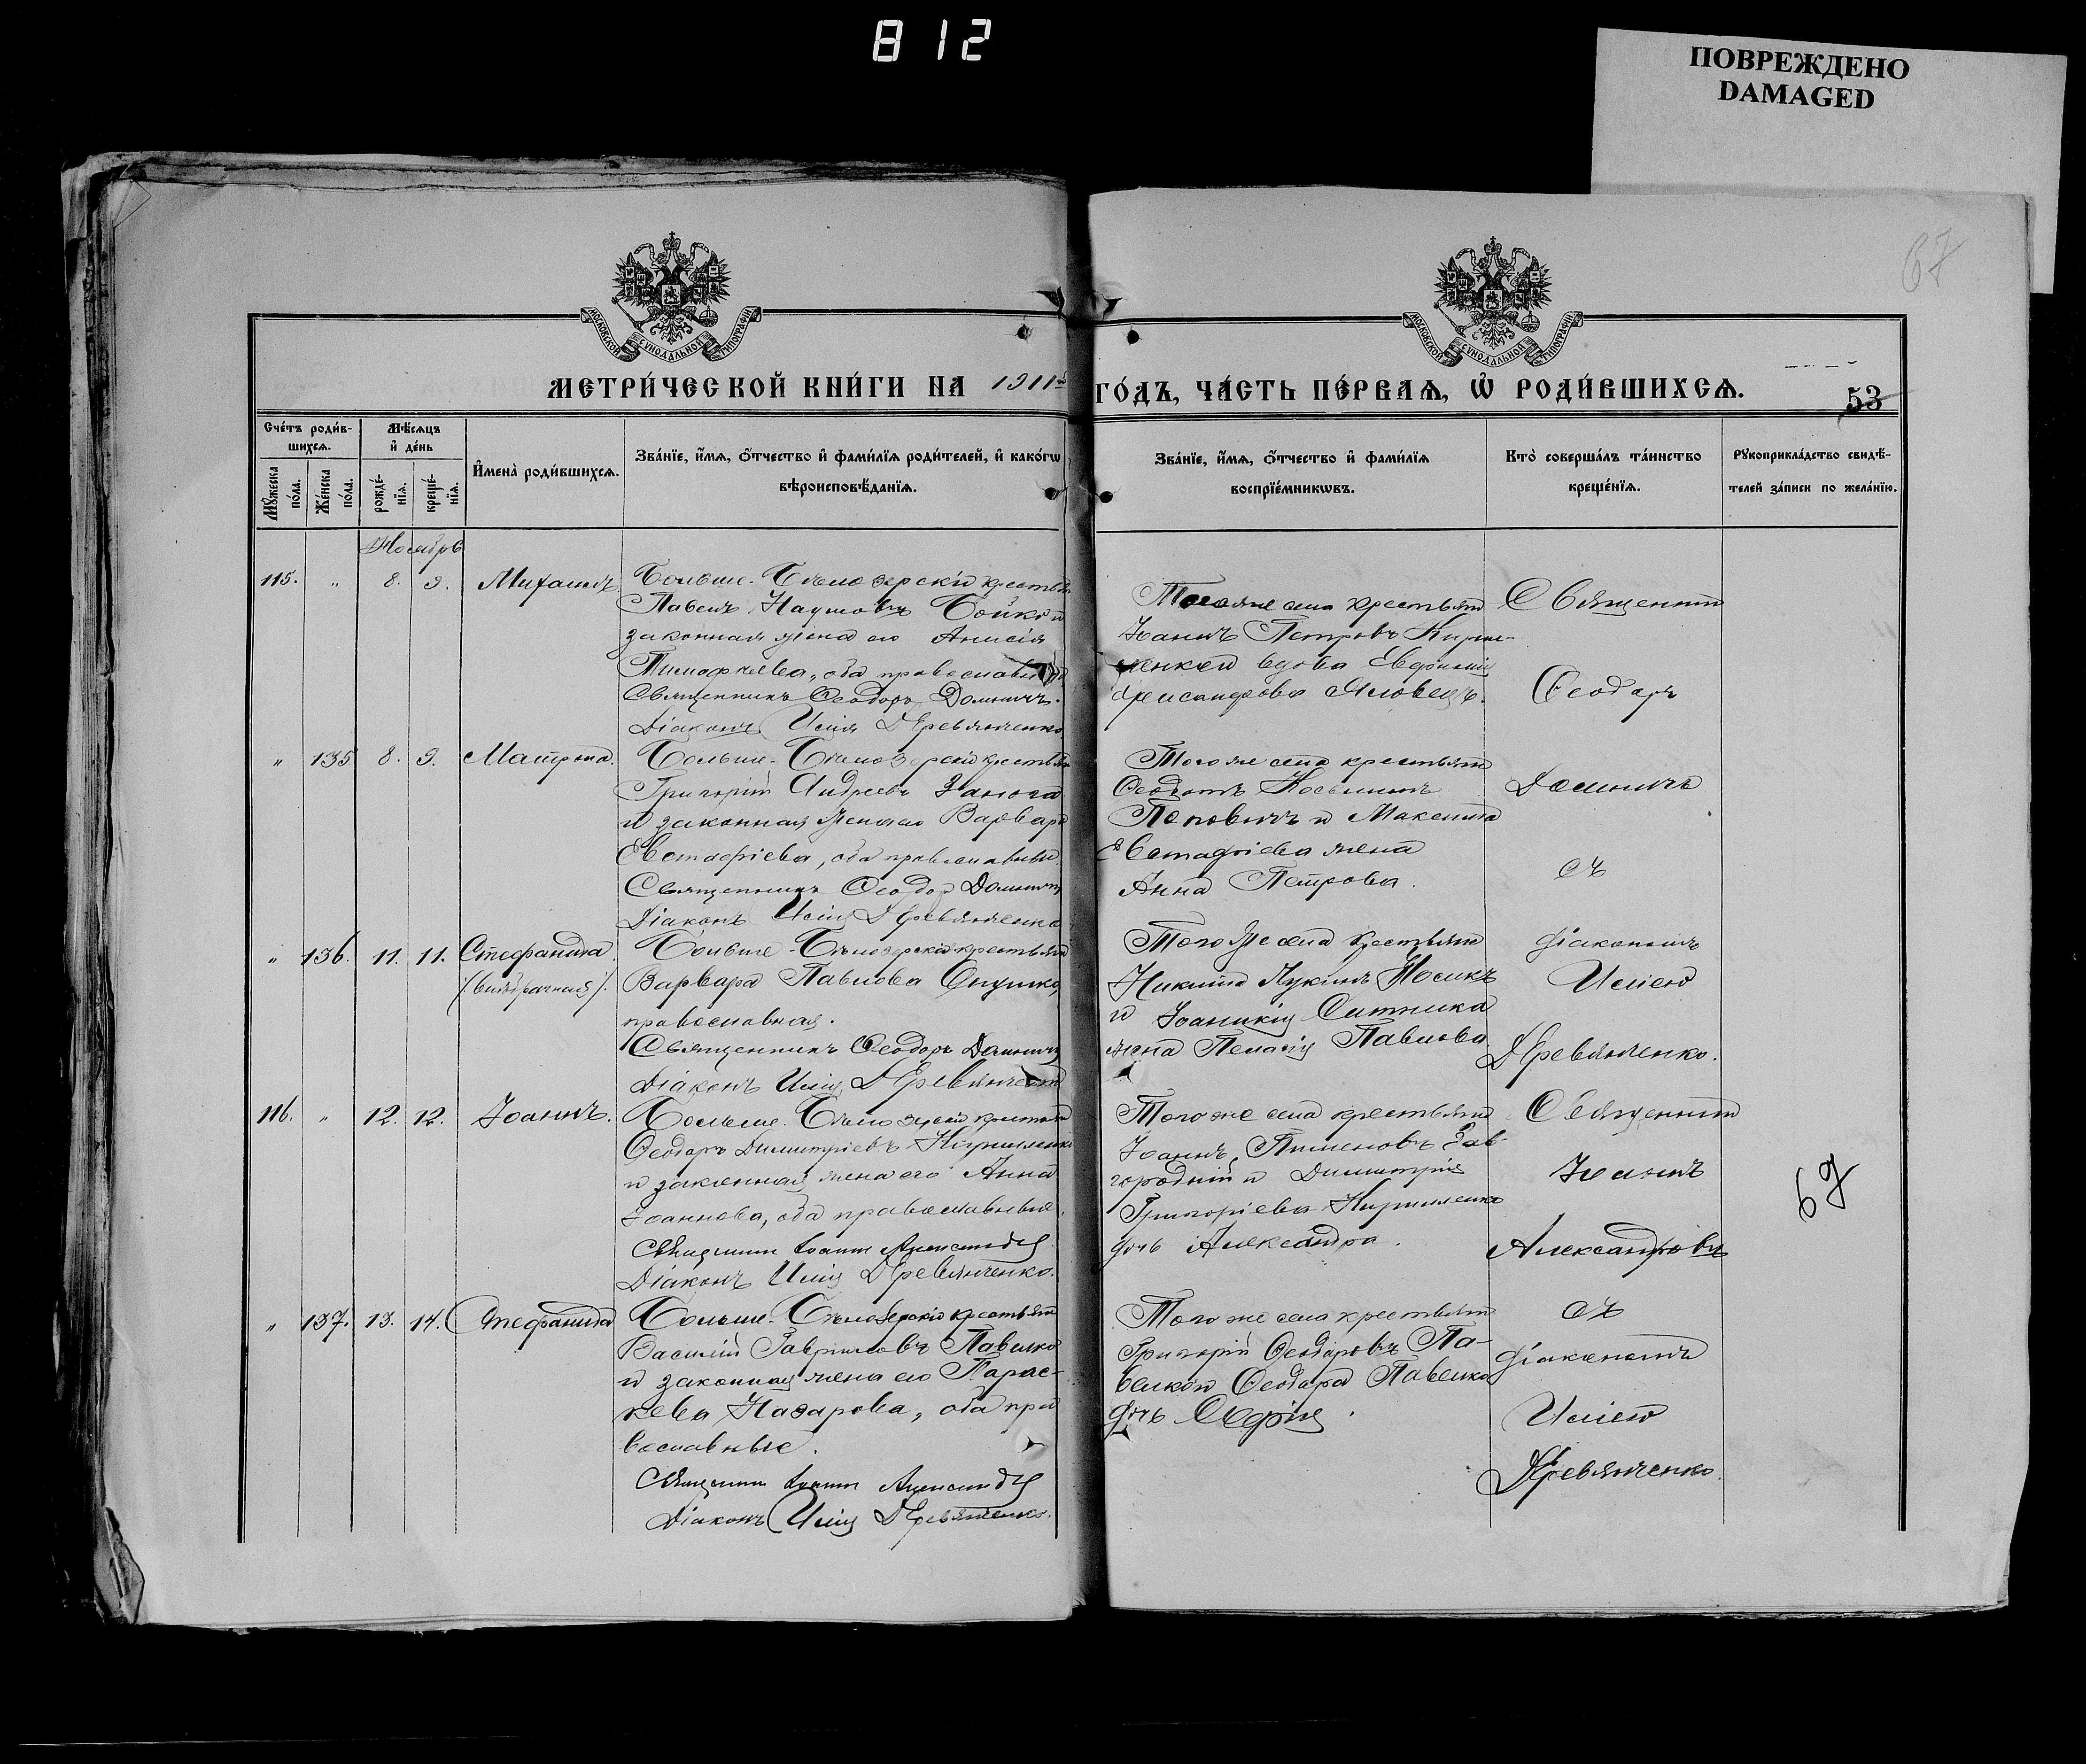 812
ПОВРЕЖДЕНО
DAMAGED
67
МОСКОВСКОЙ СѴНОДАЛЬНОЙ ТИПОГРАФІИ
МОСКОВСКОЙ СѴНОДАЛЬНОЙ ТИПОГРАФІИ
МЕТРИ́ЧЕСКОЙ КНИ́ГИ НА 1911й ГО́ДЪ, ЧА́СТЬ ПЕ́РВАѦ, Ѡ҆ РОДИ́ВШИХСѦ.
53
Сче́тъ роди́в-
шихсѧ.
Мꙋ́жеска по́ла.
Же́нска по́ла.
Мѣ́сѧцъ
и҆ де́нь
рожде́-нїѧ.
креще́-нїѧ.
И҆мена̀ роди́вшихсѧ.
Зва́нїе, и҆́мѧ, ѻ҆́тчество и҆ фами́лїѧ роди́телей, и҆ како́гѡ
вѣроисповѣ́данїѧ.
Зва́нїе, и҆́мѧ, ѻ҆́тчество и҆ фами́лїѧ
воспрїе́мникѡвъ.
Кто̀ соверша́лъ та́инство
креще́нїѧ.
Рꙋкоприкла́дство свидѣ́-
телей за́писи по жела́нїю.
Ноябрь
115. " 8. 9. Михаилъ
Больше-Бѣлозерскій крестьян
Павелъ Наумовъ Бойко и
законная жена его Анисія
Тимофеева, оба православные
Священникъ Ѳеодоръ Доминичъ.
Діаконъ Илія Деревянченко
Того же села крестьян
Іоаннъ Петровъ Кири-
ленко и вдова Евфимія
Александрова Яловецъ.
Священник
Ѳеодоръ
" 135 8. 9. Матрона.
Больше-Бѣлозерскій крестьян
Григорій Андреевъ Занога
и законная жена его Варвара
Евстафіева, оба православные.
Священникъ Ѳеодоръ Доминичъ
Діаконъ Илія Деревянченко
Того же села крестьян
Ѳеодотъ Косьминъ
Поповичъ и Максима
Евстафіева жена
Анна Петрова.
Доминичъ
съ
" 136. 11. 11. Стефанида
(внѣбрачная).
Больше-Бѣлозерская крестьян
Варвара Павлова Онушко,
православная.
Священникъ Ѳеодоръ Доминичъ
Діаконъ Илія Деревянченко
Того же села крестьян
Никита Лукинъ Носикъ
и Іоаникія Ситника
жена Пелагія Павлова
діакономъ
Иліею
Деревянченко.
116. " 12. 12. Іоаннъ.
Больше-Бѣлозерскій крестьян
Ѳеодоръ Димитріевъ Кириленко
и законная жена его Анна
Іоаннова, оба православные.
Священникъ Іоаннъ Александровъ
Діаконъ Илія Деревянченко.
Того же села крестьян
Іоаннъ Пименовъ Зав-
городній и Димитрія
Григоріева Кириленко
дочь Александра.
Священник
Іоаннъ
Александровъ
67
" 137. 13. 14. Стефанида
Больше-Бѣлозерскій крестьян
Василій Гавриловъ Павелко
и законная жена его Парас-
кева Назарова, оба пра
вославные.
Священникъ Іоаннъ Александровъ
Діаконъ Илія Деревянченко.
Того же села крестьян
Григорій Ѳеодоровъ Па-
велко и Ѳеодора Павелко
дочь Софія.
съ
діакономъ
Иліею
Деревянченко.